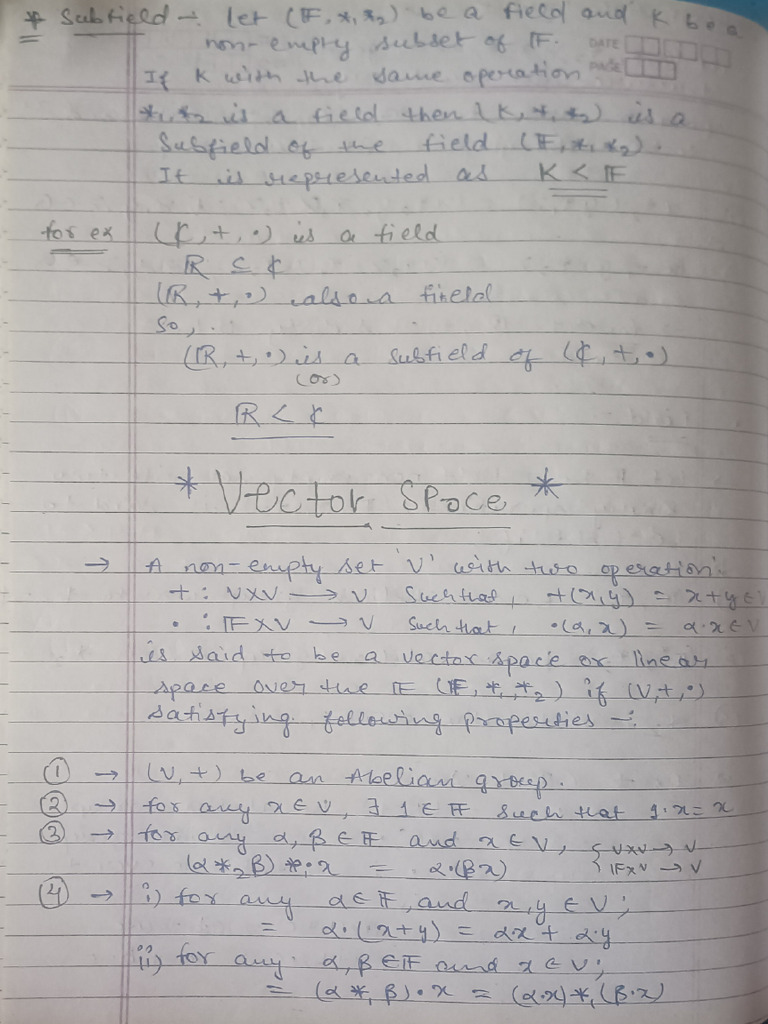 * Subfield -: let (𝔽, *₁, *₂) be a field and K be a
non-empty subset of 𝔽.
DATE
PAGE
If K with the same operation
*₁, *₂ is a field then (K, *₁, *₂) is a
Subfield of the field (𝔽, *₁, *₂).
It is represented as K < 𝔽
for ex (ℂ, +, •) is a field
ℝ ⊆ ℂ
(ℝ, +, •) also a fineld
So,
(ℝ, +, •) is a subfield of (ℂ, +, •)
(or)
ℝ < ℂ
* Vector Space *
→ A non-empty set 'V' with two operation:
+ : V×V → V Such that, +(x,y) = x+y ∈ V
• : 𝔽×V → V Such that, •(α, x) = α·x ∈ V
is said to be a vector space or linear
space over the 𝔽 (𝔽, *₁, *₂) if (V, +, •)
satisfying following properties -:
① → (V, +) be an Abelian group.
② → for any x ∈ V, ∃ 1 ∈ 𝔽 such that 1·x = x
③ → for any α, β ∈ 𝔽 and x ∈ V, { V×V → V
(α *₂ β) • x = α•(βx) 𝔽×V → V
④ → i) for any α ∈ 𝔽, and x, y ∈ V;
= α•(x+y) = αx + α·y
ii) for any α, β ∈ 𝔽 and x ∈ V;
= (α *₁ β)•x = (α·x) *₁ (β·x)